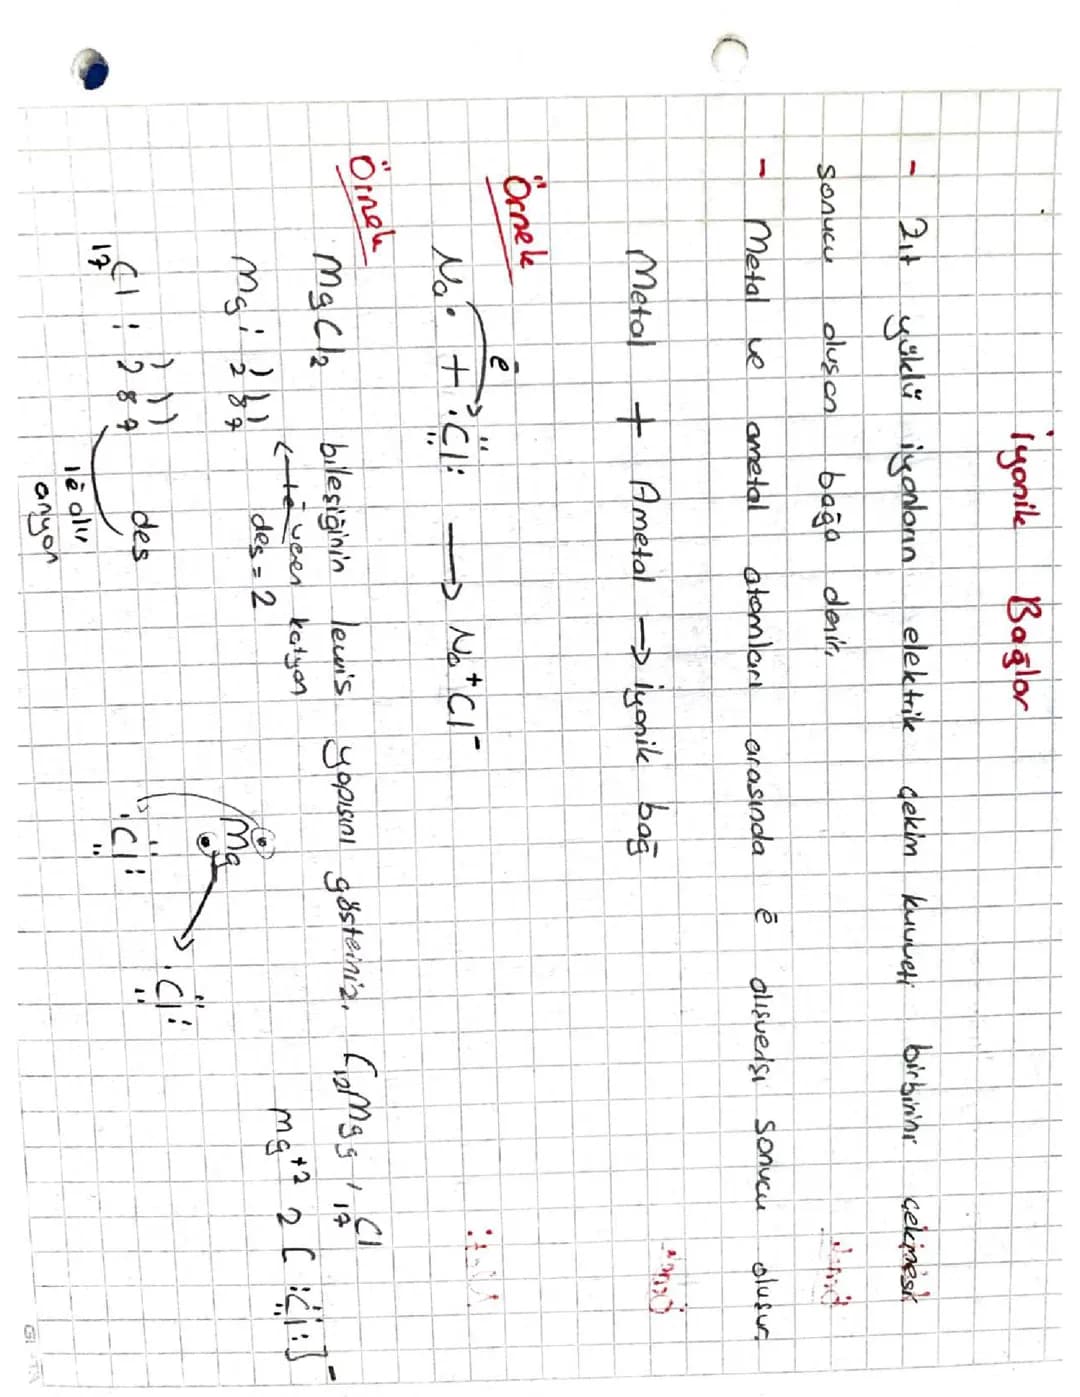 İyonik Bağlar
- Zıt yüklü iyonların elektrik çekim kuvveti birbirini çekmesi
sonucu oluşan bağa denir.
- Metal ve ametal atomları arasında ē alışverişi sonucu oluşur.
Metal + Ametal → İyonik bağ
Örnek
ē
Na· + ·Cl: → Na⁺Cl⁻
Örnek
MgCl₂ bileşiğinin lewis yapısını gösteriniz. (₁₂Mg, ₁₇Cl
veren katyon
Mg: 2 8
des = 2
Mg
Mg⁺² 2 [:Cl:]⁻
₁₇Cl : 2 8 7
des
·Cl:
·Cl:
1ē alır
anyon